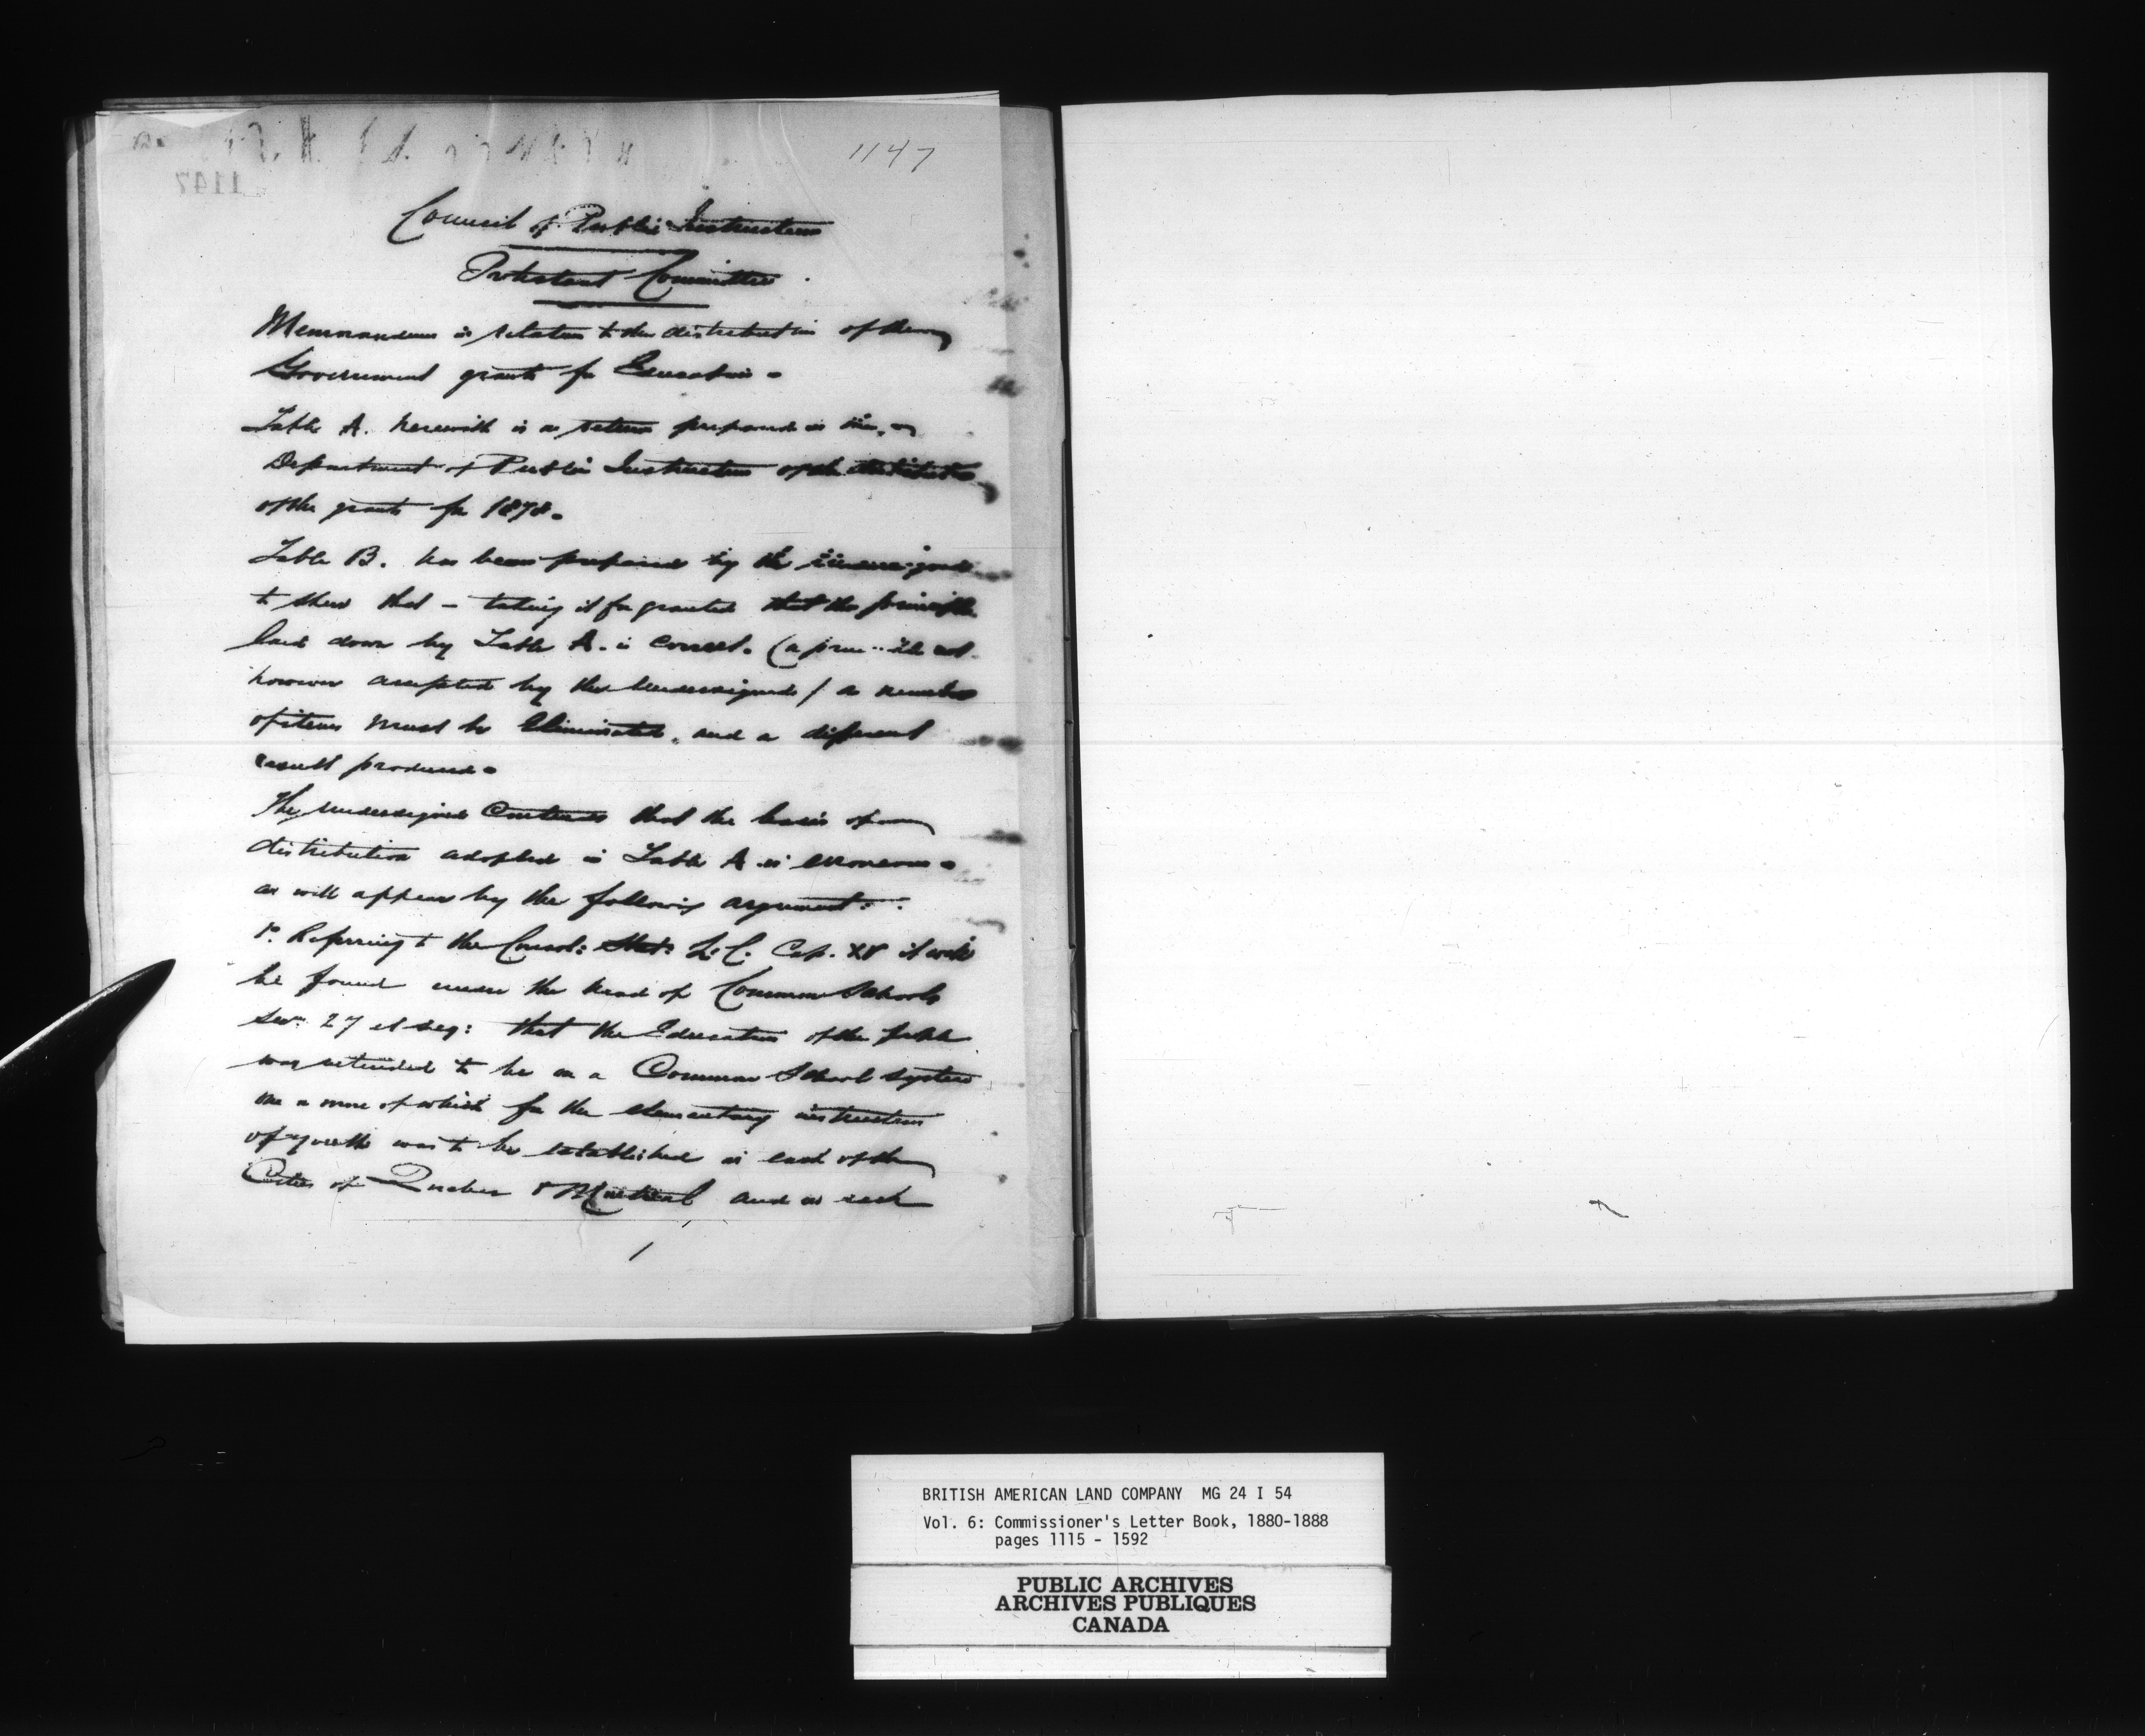 1147
Council of Public Instruction
Protestant Committee.
Memorandum in relation to the distribution of the
Government grants for Education.
Table A. herewith is a return prepared in the
Department of Public Instruction of the
of the grants for 1878.
Table B. has been prepared by the undersigned
to shew that – taking it for granted that the principle
laid down by Table A. is correct. (a principle not
however accepted by the Undersigned) a number
of items must be Eliminated, and a different
result produced.
The undersigned Contends that the basis of
distribution adopted in Table A is erroneous.
as will appear by the following argument:
1º Referring to the Consol: Stat: L: C. Cap. XV it will
be found under the head of Common Schools
Sec. 27 et seq: that the Education of the people
was intended to be on a Common School system
one or more of which for the elementary instruction
of youth was to be established in each of the
Cities of Quebec & Montreal and in each
1
BRITISH AMERICAN LAND COMPANY MG 24 I 54
Vol. 6: Commissioner's Letter Book, 1880-1888
pages 1115 - 1592
PUBLIC ARCHIVES
ARCHIVES PUBLIQUES
CANADA